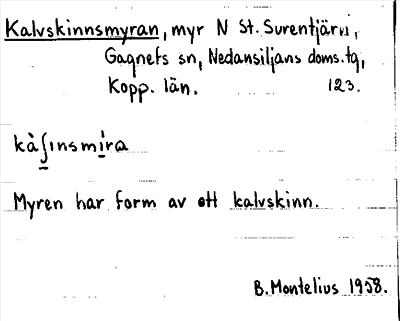 Kalvskinnsmyran, myr N St. Surentjärn,
Gagnefs sn, Nedansiljans doms.tg,
Kopp. län. 123.
kàʃınsmìra
Myren har form av ett kalvskinn.
B. Montelius 1958.